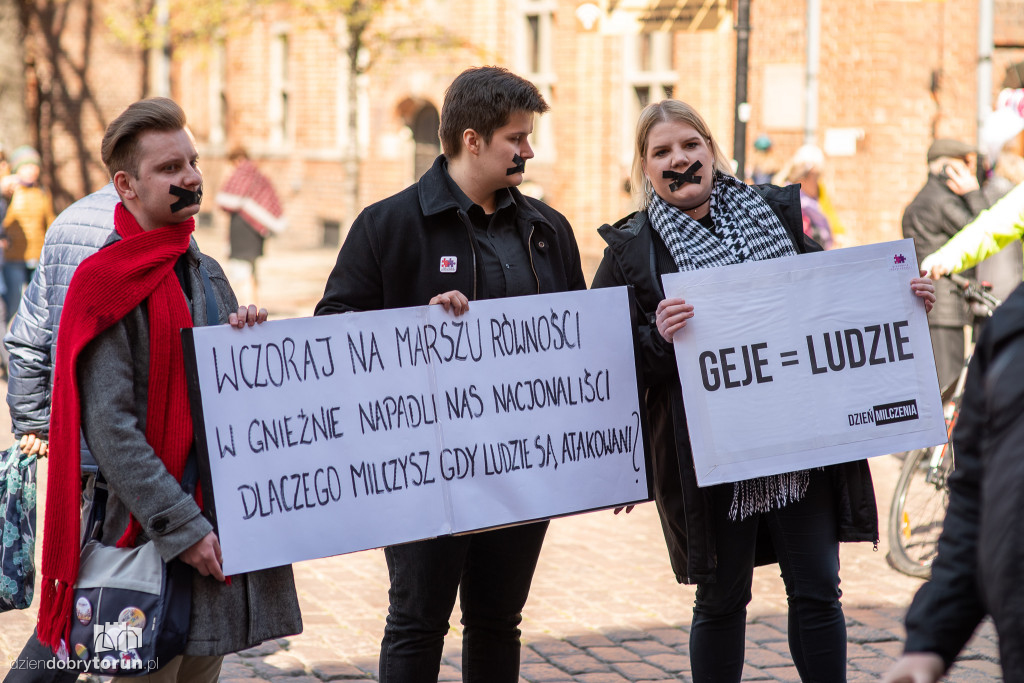 WCZORAJ NA MARSZU RÓWNOŚCI
W GNIEŹNIE NAPADLI NAS NACJONALIŚCI
DLACZEGO MILCZYSZ GDY LUDZIE SĄ ATAKOWANI?
GEJE = LUDZIE
DZIEŃ MILCZENIA
dzieńdobrytoruń.pl